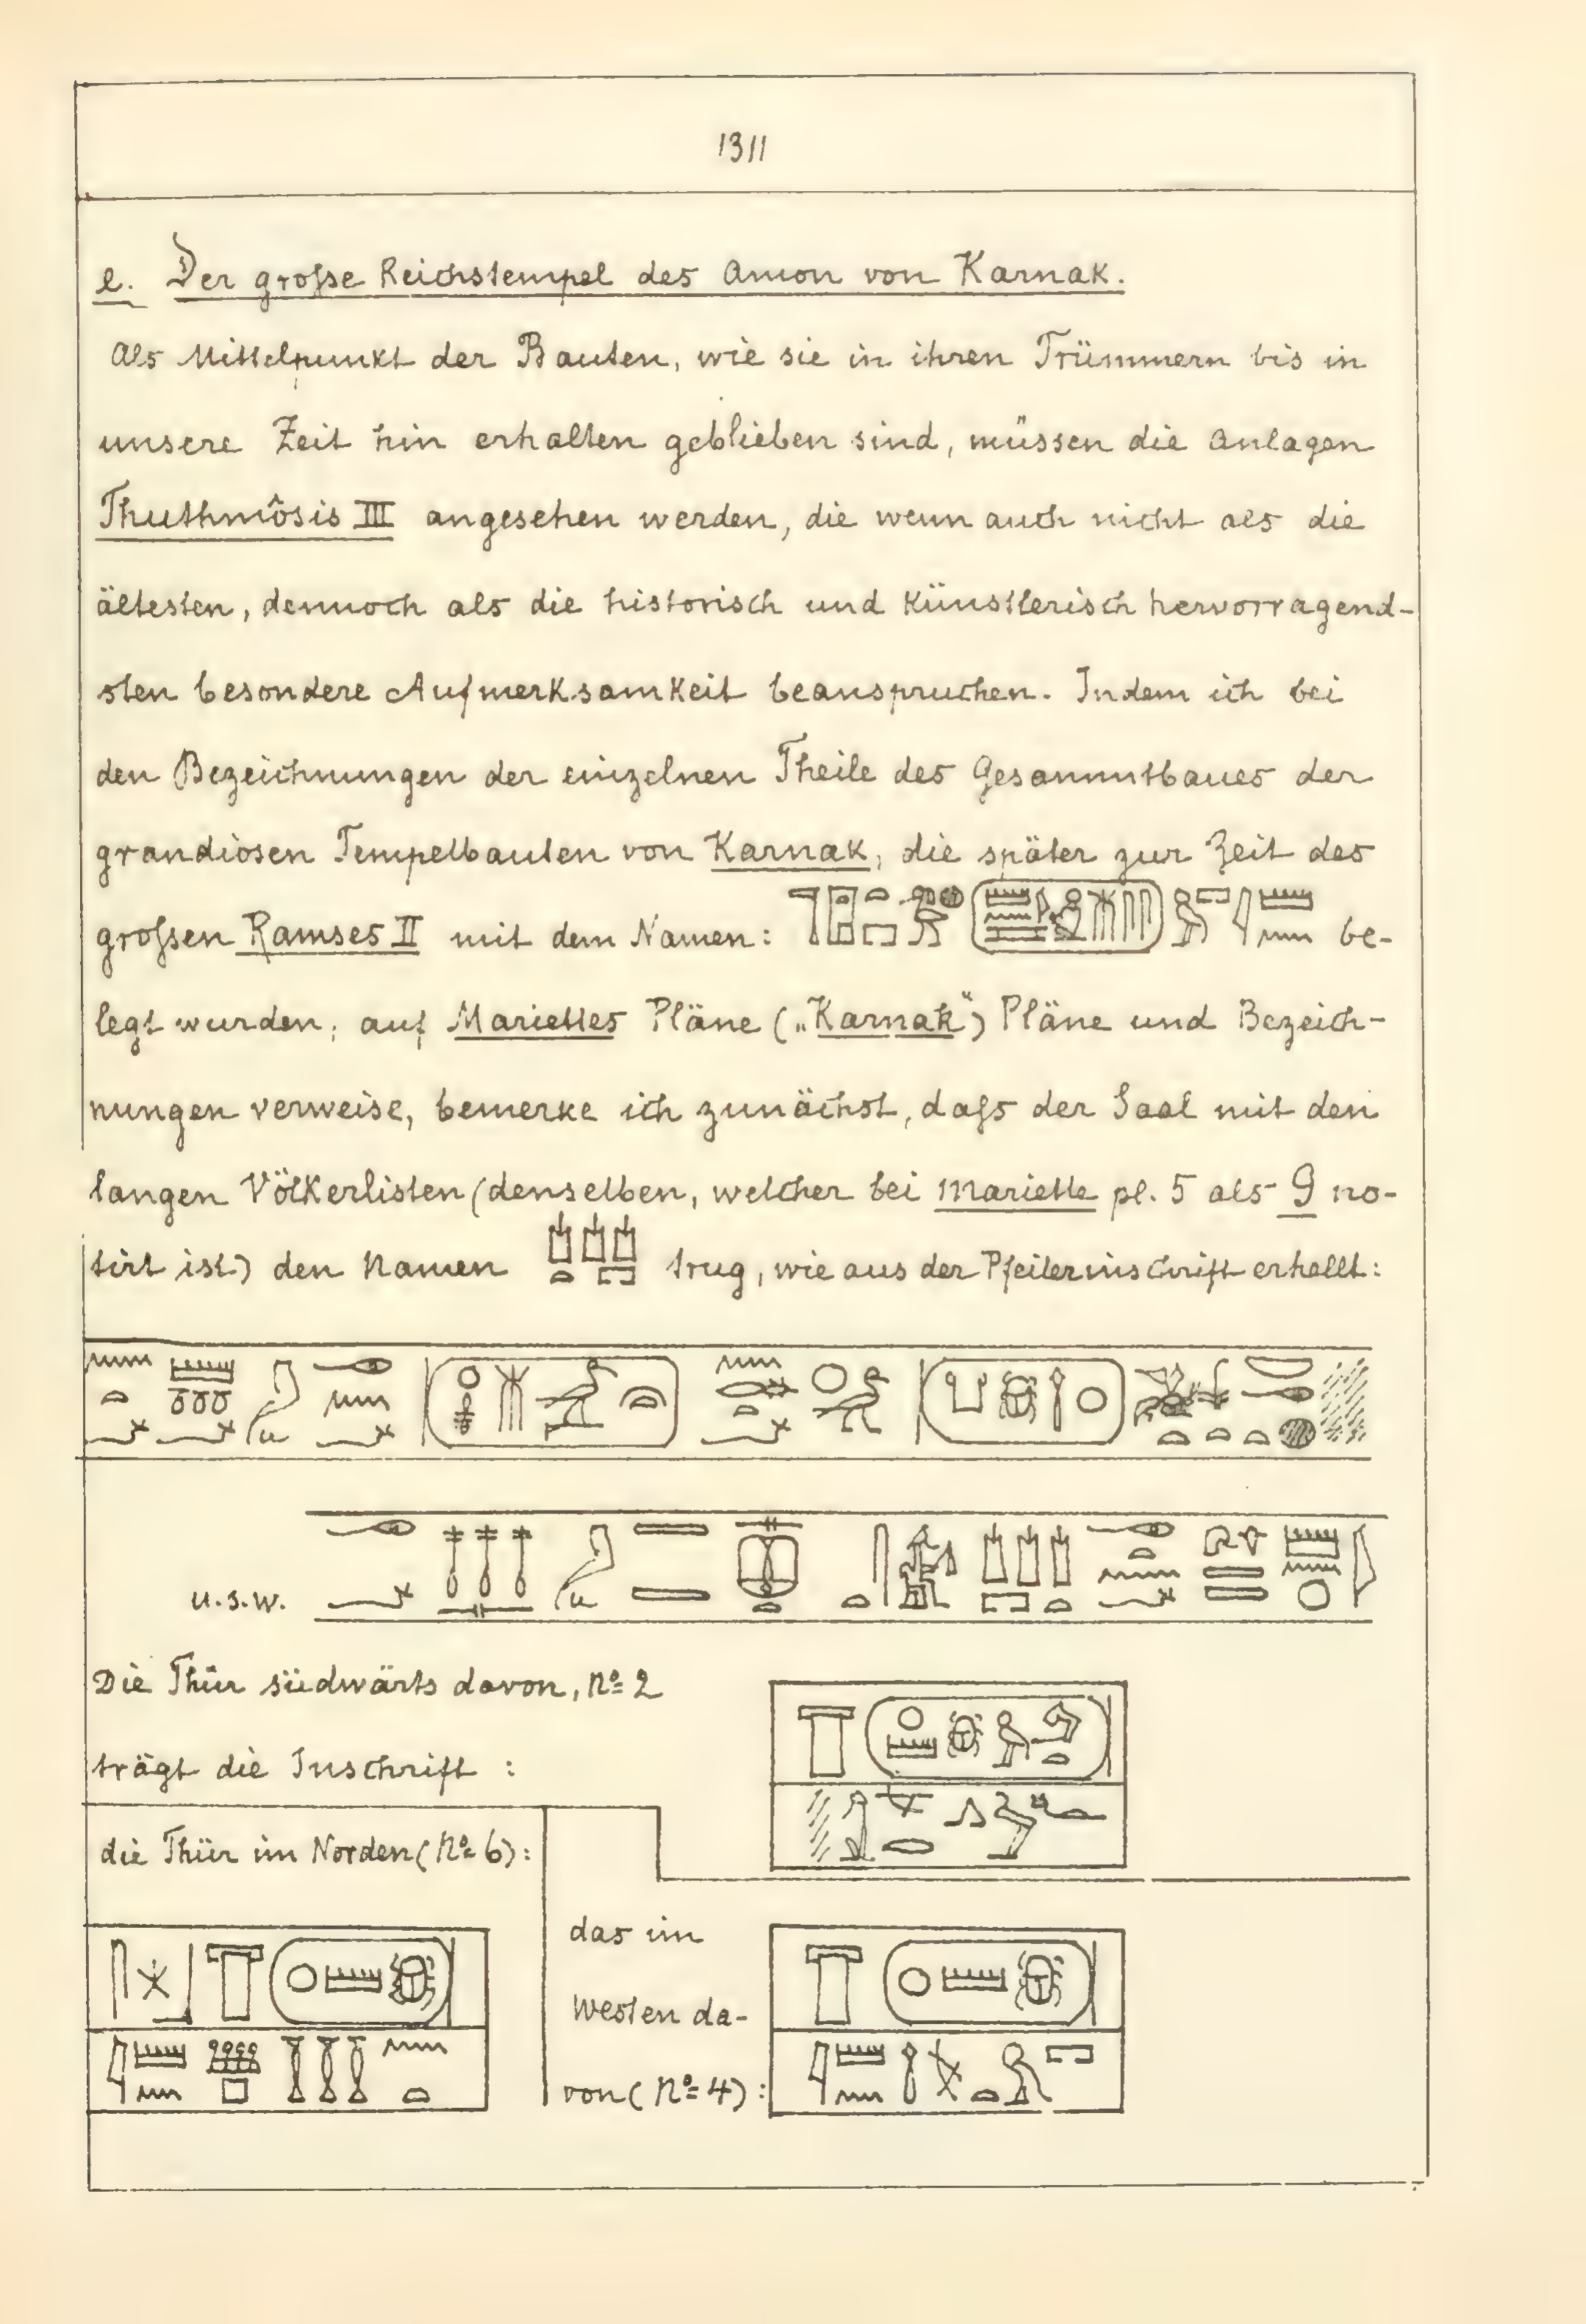 1311
e. Der große Reichstempel des Amon von Karnak.
Als Mittelpunkt der Bauten, wie sie in ihren Trümmern bis in
unsere Zeit hin erhalten geblieben sind, müssen die Anlagen
Thuthmôsis III angesehen werden, die wenn auch nicht als die
ältesten, dennoch als die historisch und künstlerisch hervorragend-
sten besondere Aufmerksamkeit beanspruchen. Indem ich bei
den Bezeichnungen der einzelnen Theile des Gesammtbaues der
grandiosen Tempelbauten von Karnak, die später zur Zeit des
großen Ramses II mit dem Namen: be-
legt wurden, auf Mariettes Pläne („Karnak“) Pläne und Bezeich-
nungen verweise, bemerke ich zunächst, daß der Saal mit den
langen Völkerlisten (denselben, welcher bei Mariette pl. 5 als 9 no-
tirt ist) den Namen trug, wie aus der Pfeilerinschrift erhellt:
u.s.w.
Die Thür südwärts davon, No 2
trägt die Inschrift :
die Thür im Norden (No 6):
das im
Westen da-
von (No 4):